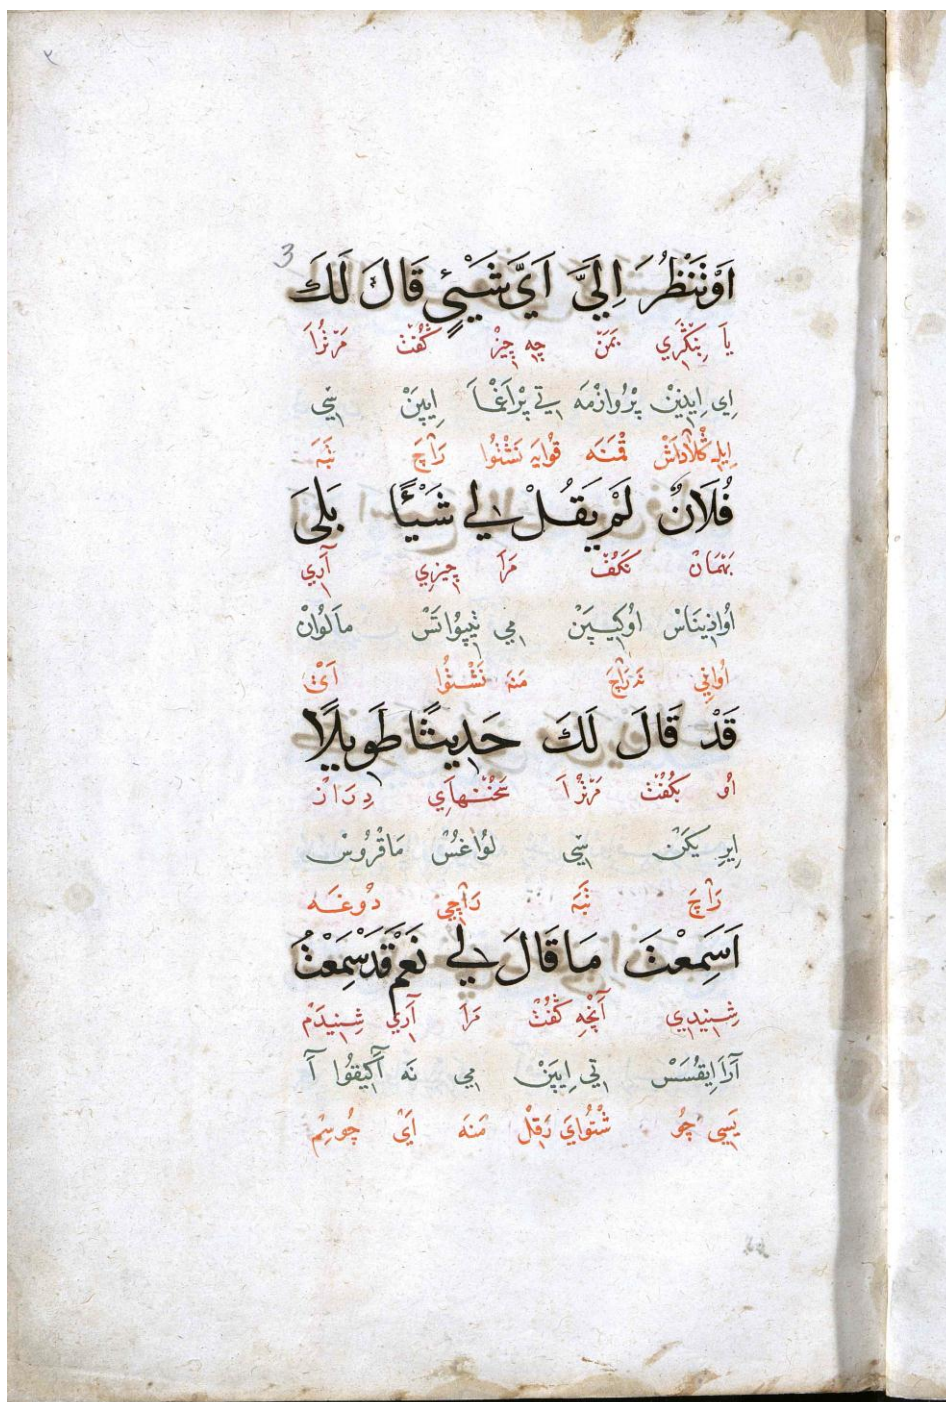 ٢
3
اَوْ نَنْظُرَ اِلَيَّ اَيَّ شَيْئٍ قَالَ لَكَ
يَا بِنِكَرِي بَمَنْ چِه چِيزْ كُفْتْ مَرْتُرَا
اِي اِيدِيْن پْرُوازْمَه تِي پْرَاغْمَا اِيپَنْ سِي
اِيلِ كْلَادَاشْ قْمَنَه قُوايَه نَشْتُوا رَاچَ تَبَه
فُلَانٌ لَمْ يَقُلْ لِي شَيْئًا بَلَى
بَهْمَانْ نَكُفْتْ مَرَا چِيزِي آرِي
اُواذِينَاسْ اُوكِيپَنْ مِي تِيپُوْاتَسْ مَالُوانْ
اُوانِي نَه رَاچَ مَنَه نَشْتُوا اَيْ
قَدْ قَالَ لَكَ حَدِيثًا طَوِيلًا
اُو بَكُفْتْ مَرْتُرَا سَخُنْهَايِ دِرَازْ
اِيرِ يكَنْ سِي لُوْاغُسْ مَاقْرُوسْ
رَاچَ تَبَه رَاچِي دُوغَه
اَسَمِعْتَ مَا قَالَ لِي نَعَمْ قَدْ سَمِعْتُ
شِنِيدِي آنْچِه كُفْتْ مَرَا آرِي شِنِيدَمْ
آرَا اِيقُسَسْ تِي اِيپَنْ مِي نَه آكِيقُوا آ
يَسِي چُو شْتُوايَ رَقْلْ مَنَه اَيْ چُوسِمْ